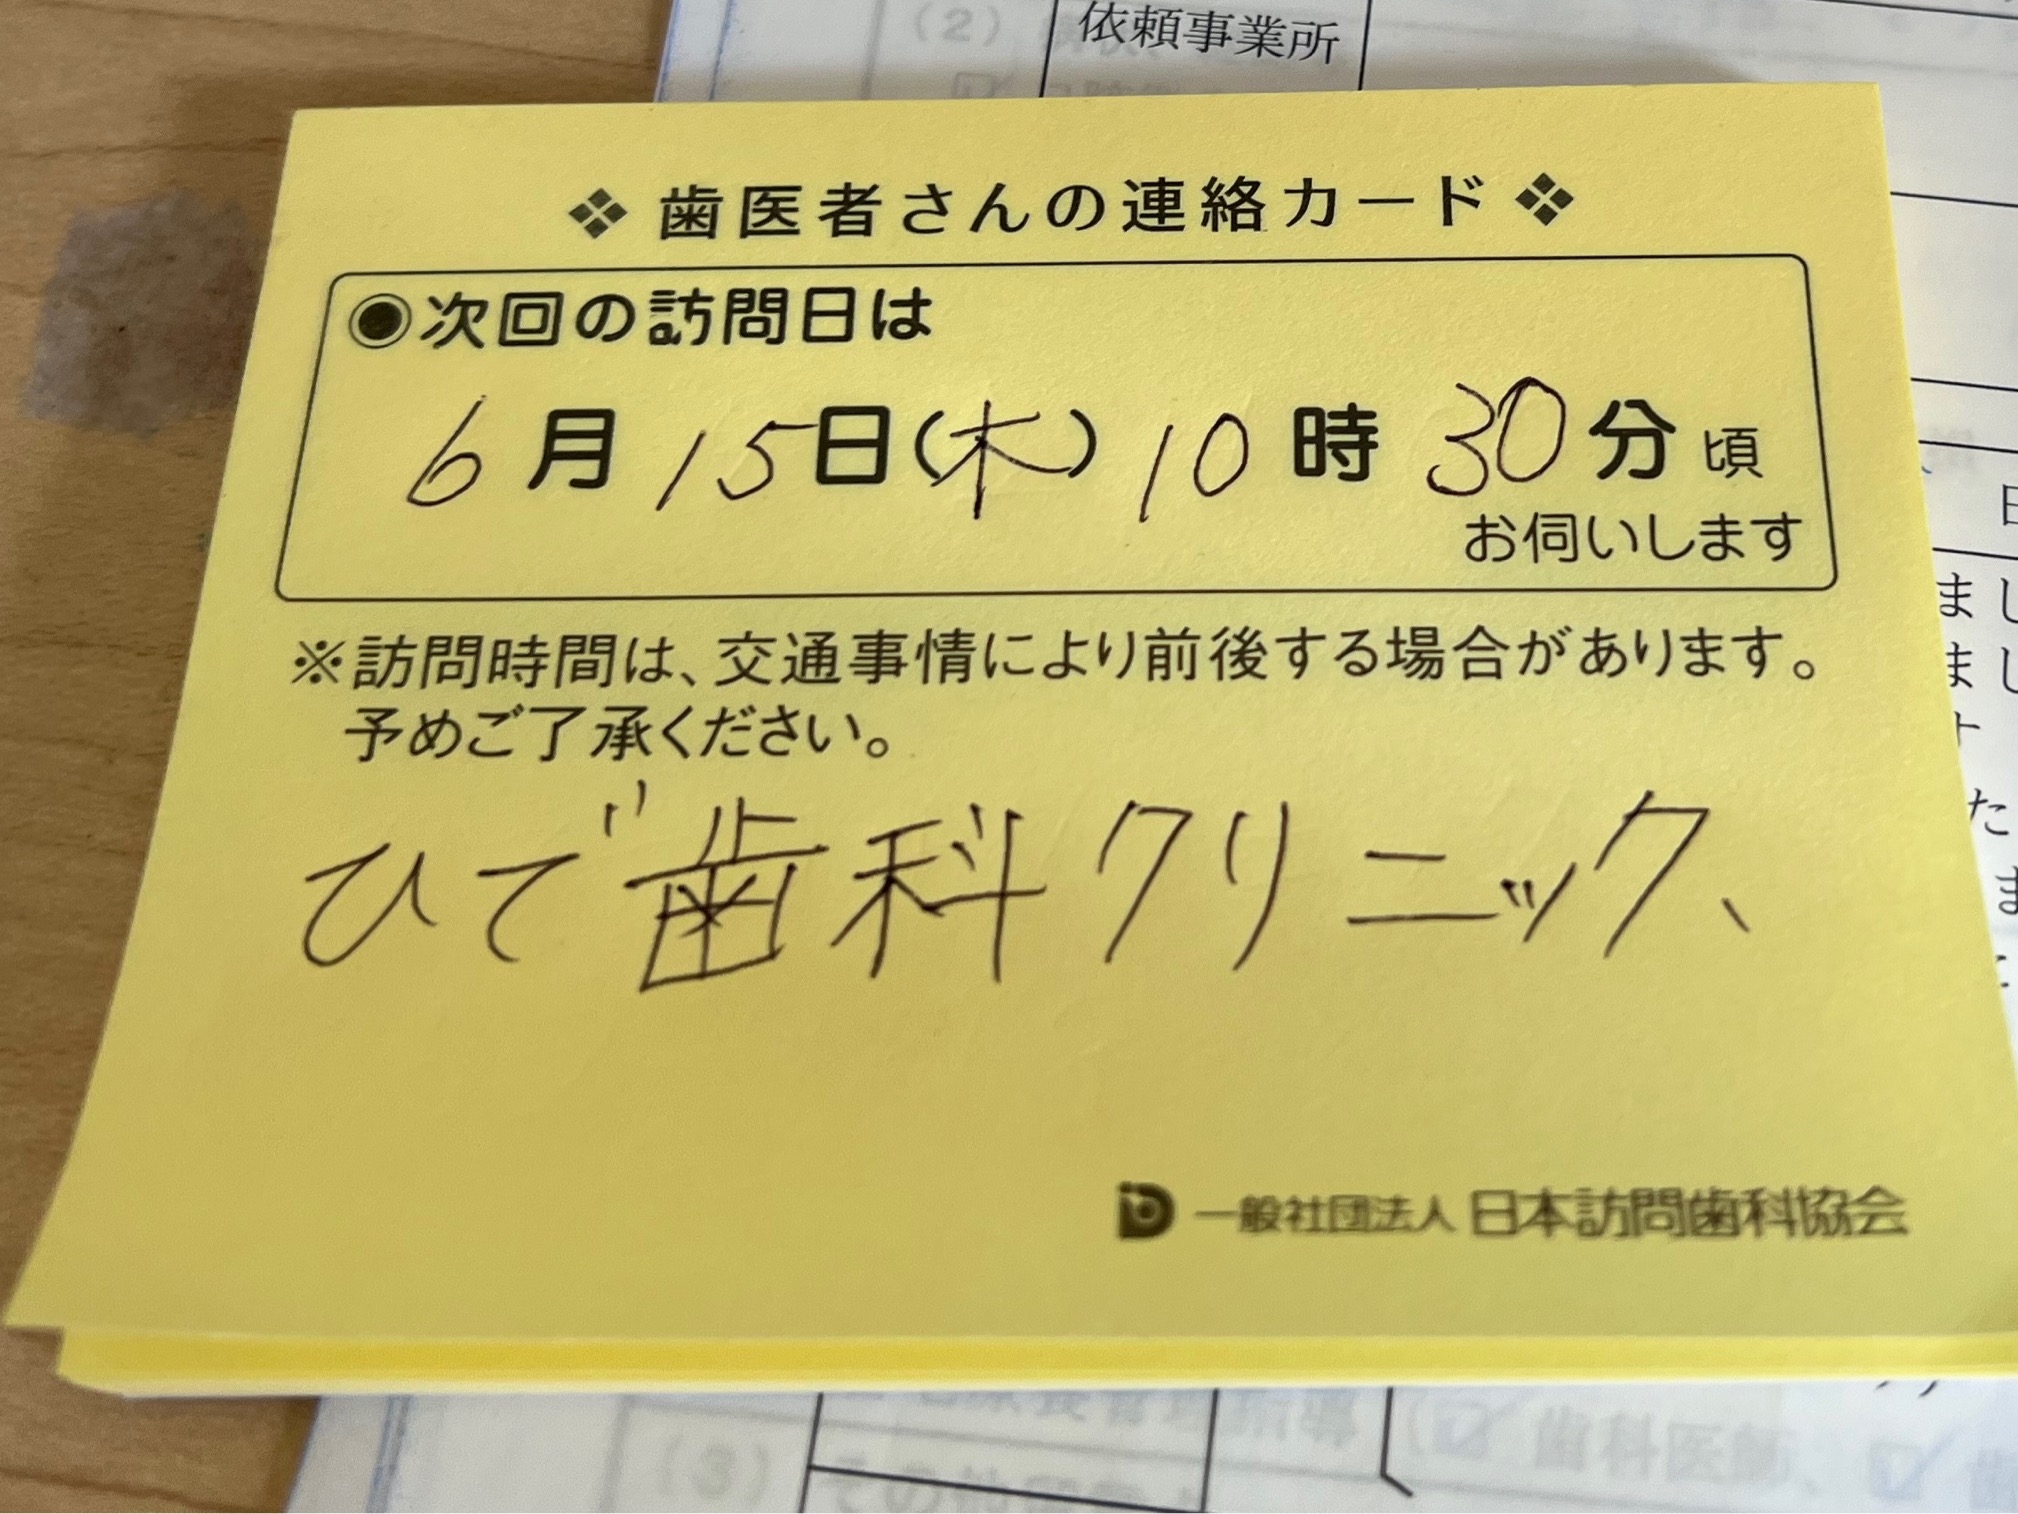 (2)
依頼事業所
❖ 歯医者さんの連絡カード ❖
◉次回の訪問日は
6月15日(木)10時30分頃
お伺いします
※訪問時間は、交通事情により前後する場合があります。
予めご了承ください。
ひで歯科クリニック、
一般社団法人 日本訪問歯科協会
日
まし
まし
た
ま
(3)
歯科医師、